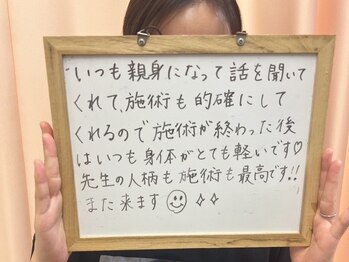 いつも親身になって話を聞いて
くれて、施術も的確にして
くれるので施術が終わった後
はいつも身体がとても軽いです♡
先生の人柄も施術も最高です!!
また来ます